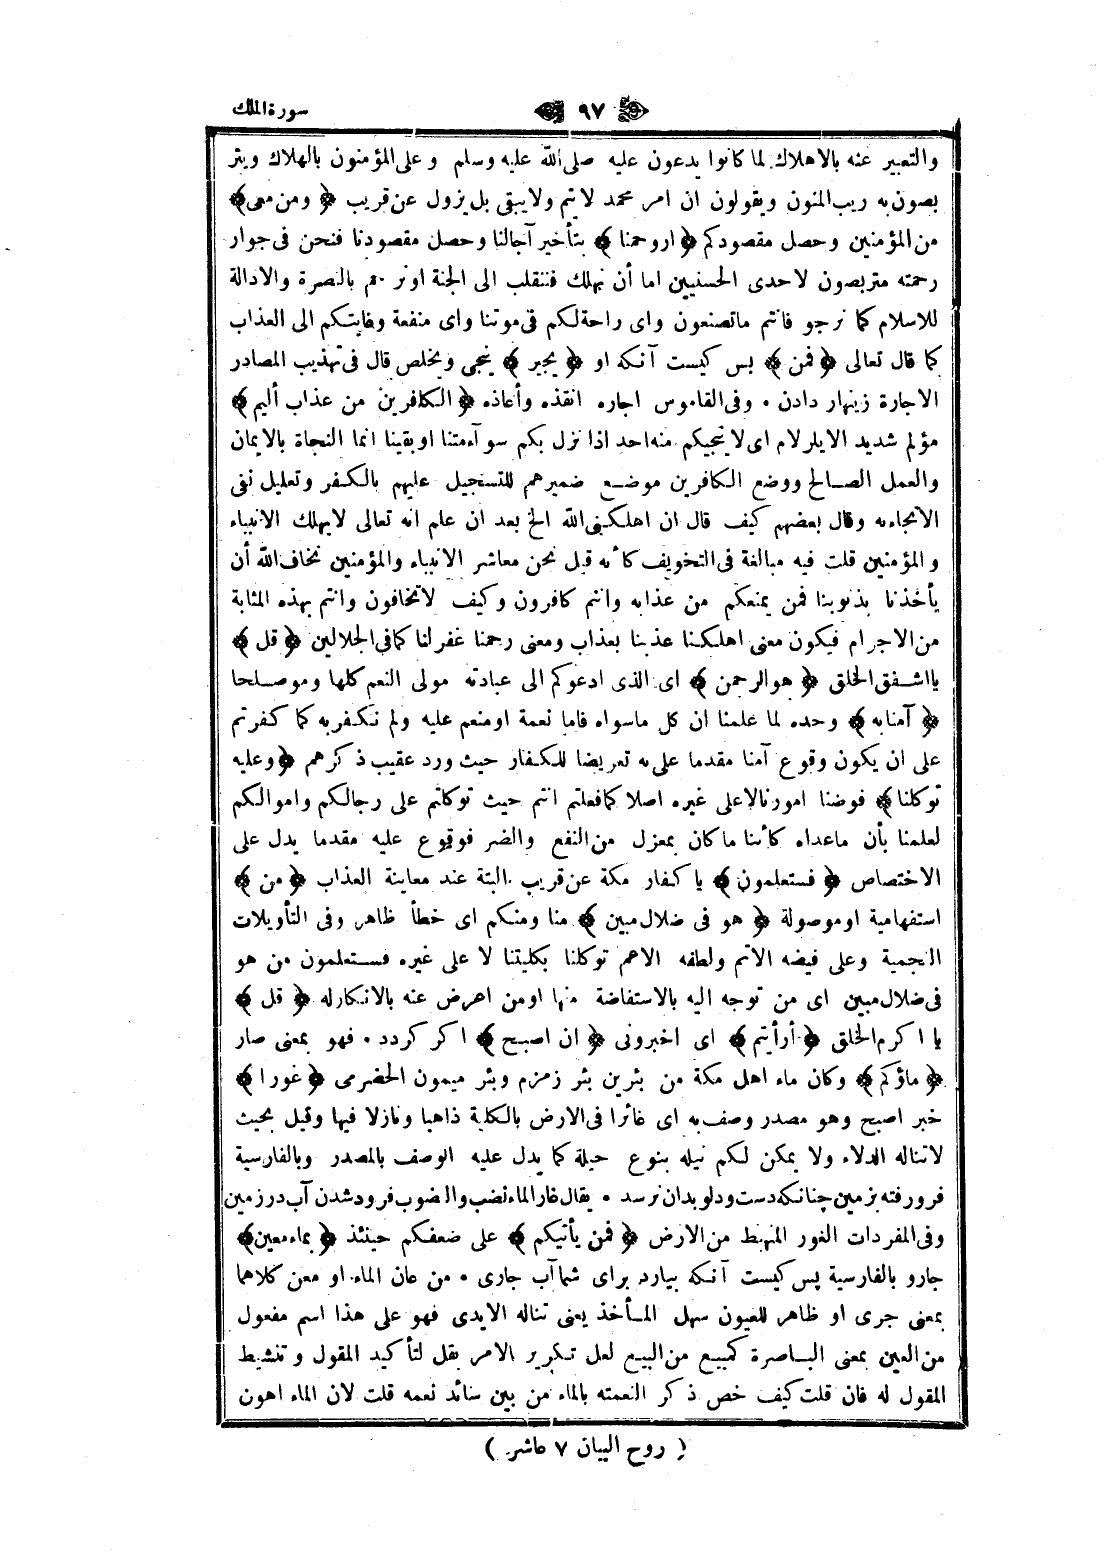 سورة الملك
٩٧
والتعبير عنه بالاهلاك لما كانوا يدعون عليه صلى الله عليه وسلم وعلى المؤمنون بالهلاك ويتر
بصون به ريب المنون ويقولون ان امر محمد لايتم ولايبقى بل يزول عن قريب ﴿ ومن معى ﴾
من المؤمنين وحصل مقصودكم ﴿ اورحمنا ﴾ بتأخير آجالنا وحصل مقصودنا فنحن فى جوار
رحمته متربصون لاحدى الحسنيين اما أن نهلك فننقلب الى الجنة اونرحم بالنصرة والادالة
للاسلام كما نرجو فانتم ماتصنعون واى راحة لكم فى موتنا واى منفعة وغايتكم الى العذاب
كما قال تعالى ﴿ فمن ﴾ بس كيست آنكه او ﴿ يجير ﴾ ينجى ويخلص قال فى تهذيب المصادر
الاجارة زينهار دادن ٠ وفى القاموس اجاره انقذه وأعاذه ﴿ الكافرين من عذاب أليم ﴾
مؤلم شديد الايلرلام اى لاينجيكم منه احد اذا نزل بكم سوآء متنا اوبقينا انما النجاة بالايمان
والعمل الصالح ووضع الكافرين موضع ضميرهم للتسجيل عليهم بالكفر وتعليل نفى
الانجاء به وقال بعضهم كيف قال ان اهلكنى الله الخ بعد ان علم انه تعالى لايهلك الانبياء
والمؤمنين قلت فيه مبالغة فى التخويف كأنه قيل نحن معاشر الانبياء والمؤمنين نخاف الله أن
يأخذنا بذنوبنا فمن يمنعكم من عذابه وانتم كافرون وكيف لاتخافون وانتم بهذه المثابة
من الاجرام فيكون معنى اهلكنا عذبنا بعذاب ومعنى رحمنا غفر لنا كمافى الجلالين ﴿ قل ﴾
يااشفق الخلق ﴿ هو الرحمن ﴾ اى الذى ادعوكم الى عبادته مولى النعم كلها وموصلحا
﴿ آمنابه ﴾ وحده لما علمنا ان كل ماسواه فاما نعمة اومنعم عليه ولم نكفر به كما كفرتم
على ان يكون وقوع آمنا مقدما على به تعريضا للكفار حيث ورد عقيب ذكرهم ﴿ وعليه
توكلنا ﴾ فوضنا امورنا لاعلى غيره اصلا كمافعلتم انتم حيث توكلتم على رجالكم واموالكم
لعلمنا بأن ماعداه كائنا ماكان بمعزل من النفع والضر فوقوع عليه مقدما يدل على
الاختصاص ﴿ فستعلمون ﴾ يا كفار مكة عن قريب البتة عند معاينة العذاب ﴿ من ﴾
استفهامية اوموصولة ﴿ هو فى ضلال مبين ﴾ منا ومنكم اى خطأ ظاهر وفى التأويلات
النجمية وعلى فيضه الاتم ولطفه الاعم توكلنا بكليتنا لا على غيره فستعلمون من هو
فى ضلال مبين اى من توجه اليه بالاستفاضة منها اومن اعرض عنه بالانكارله ﴿ قل ﴾
يا اكرم الخلق ﴿ أرأيتم ﴾ اى اخبرونى ﴿ ان اصبح ﴾ اكر كردد ٠ فهو بمعنى صار
﴿ ماؤكم ﴾ وكان ماء اهل مكة من بئرين بئر زمزم وبئر ميمون الحضرمى ﴿ غورا ﴾
خبر اصبح وهو مصدر وصف به اى غائرا فى الارض بالكلية ذاهبا ونازلا فيها وقيل بحيث
لاتناله الدلاء ولا يمكن لكم نيله بنوع حيلة كما يدل عليه الوصف بالمصدر وبالفارسية
فرورفته بزمين چنانكه دست ودلو بدان نرسد ٠ يقال غار الماء نضب والنضوب فرودشدن آب درزمين
وفى المفردات الغور المنهبط من الارض ﴿ فمن يأتيكم ﴾ على ضعفكم حينئذ ﴿ بماء معين ﴾
جارو بالفارسية پس كيست آنكه بيارد براى شما آب جارى ٠ من عان الماء او معن كلاهما
بمعنى جرى او ظاهر للعيون سهل المأخذ يعنى تناله الايدى فهو على هذا اسم مفعول
من العين بمعنى الباصرة كمبيع من البيع لعل تكرير الامر بقل لتأكيد المقول وتنشيط
المقول له فان قلت كيف خص ذكر النعمته بالماء من بين سائد نعمه قلت لان الماء اهون
( روح البيان ٧ عاشر )